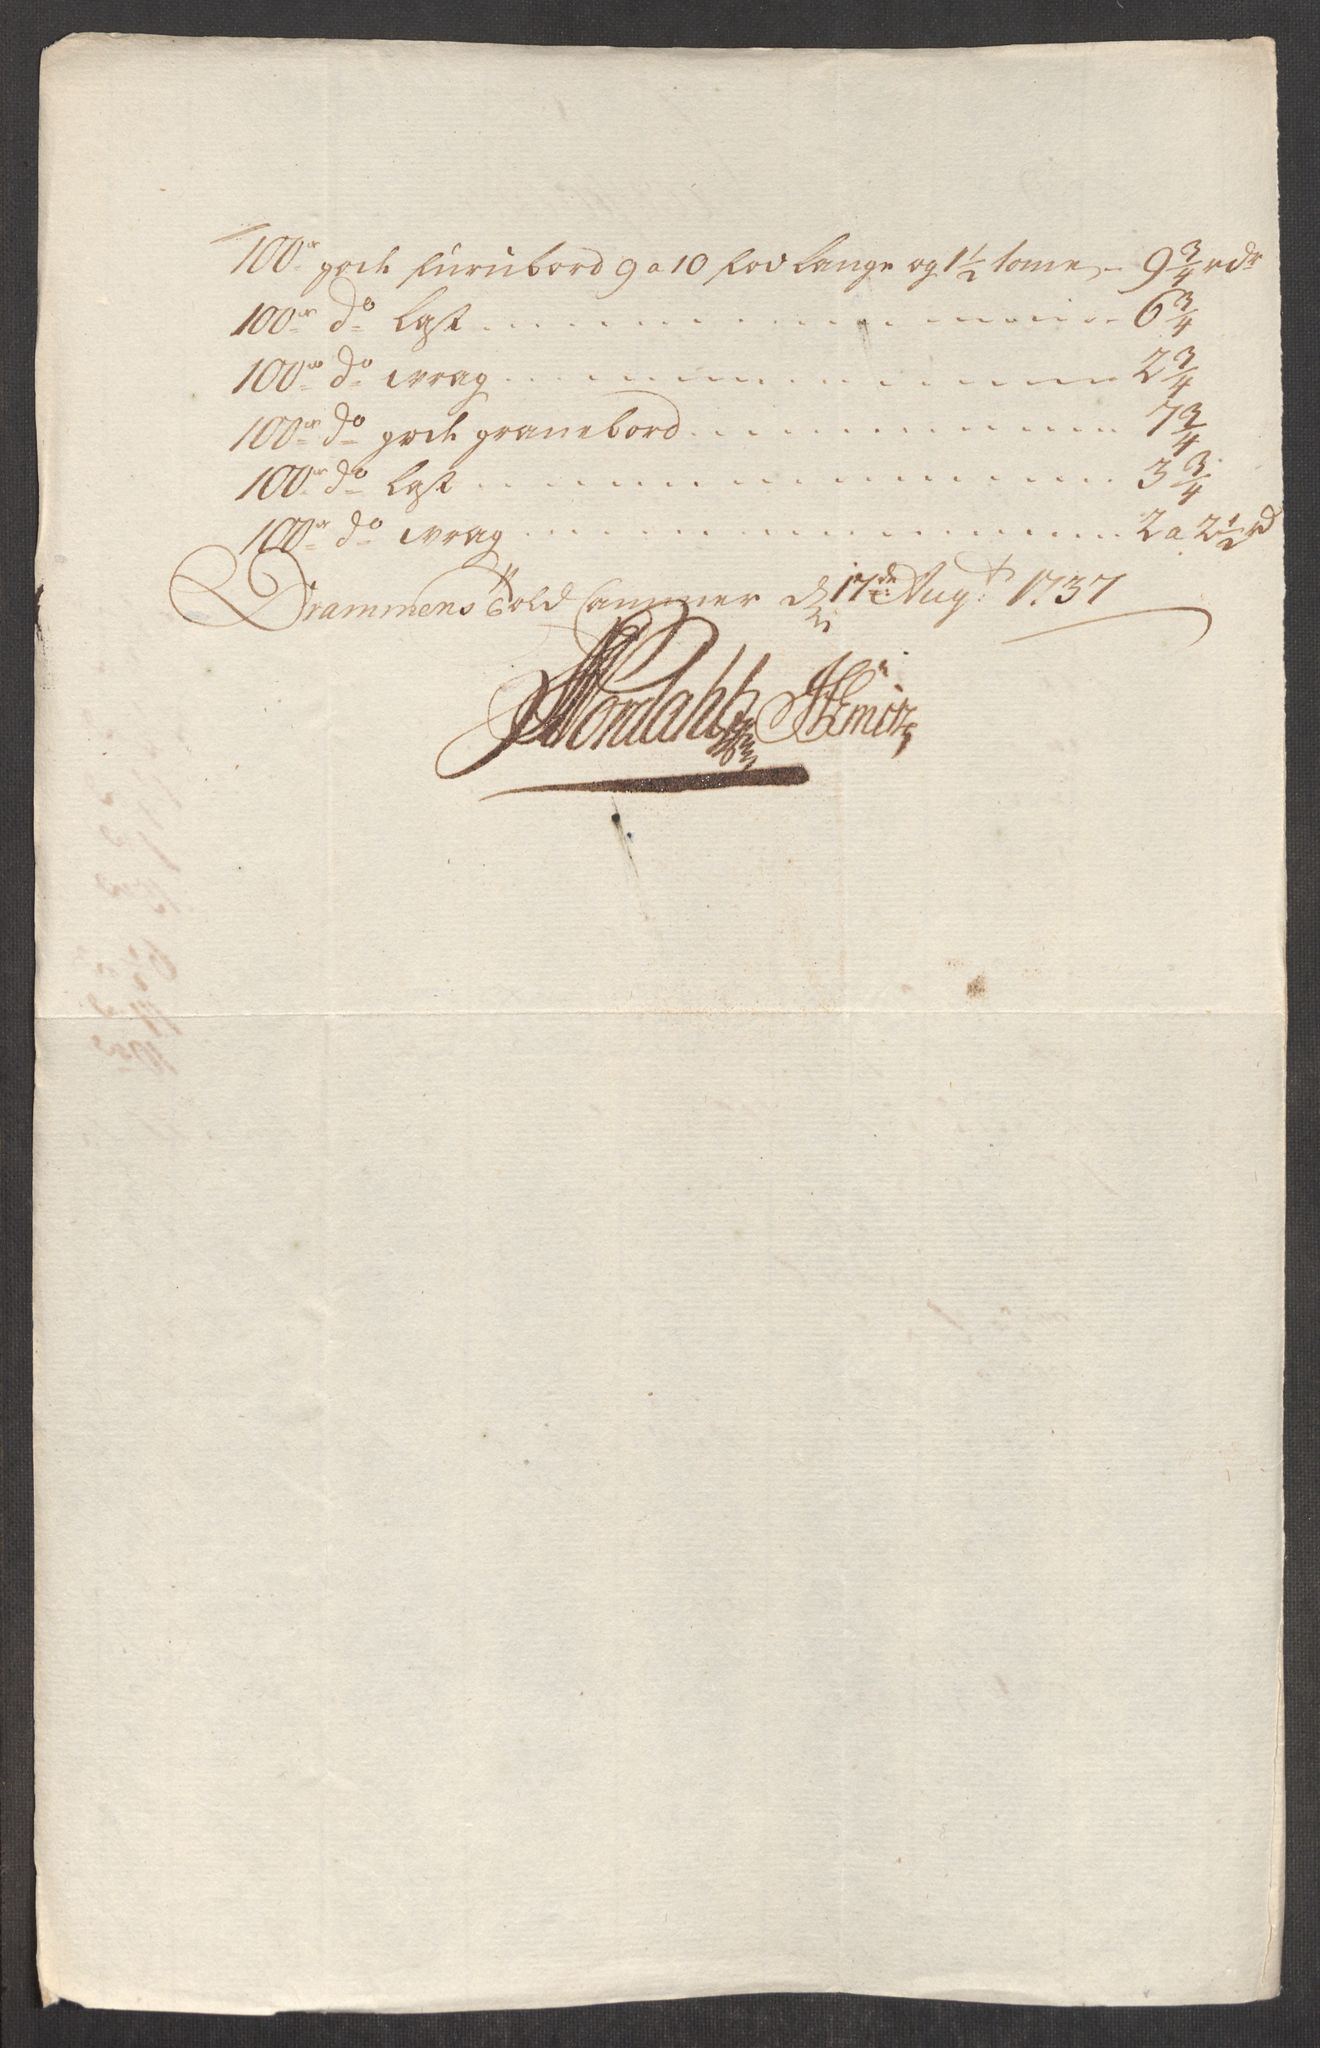 100er gode furubord 9 a 10 fod lange og 1 1/2 tome - 9 3/4 rdr
100er do lest . . . . 6 3/4
100er do wrag . . . . 2 3/4
100er do gode granebord . . . . 7 3/4
100er do lest . . . . 3 3/4
100er do wrag . . . . 2 a 2 1/2 rd
Drammens Told Cammer d 17de Augt 1737
Nordahl